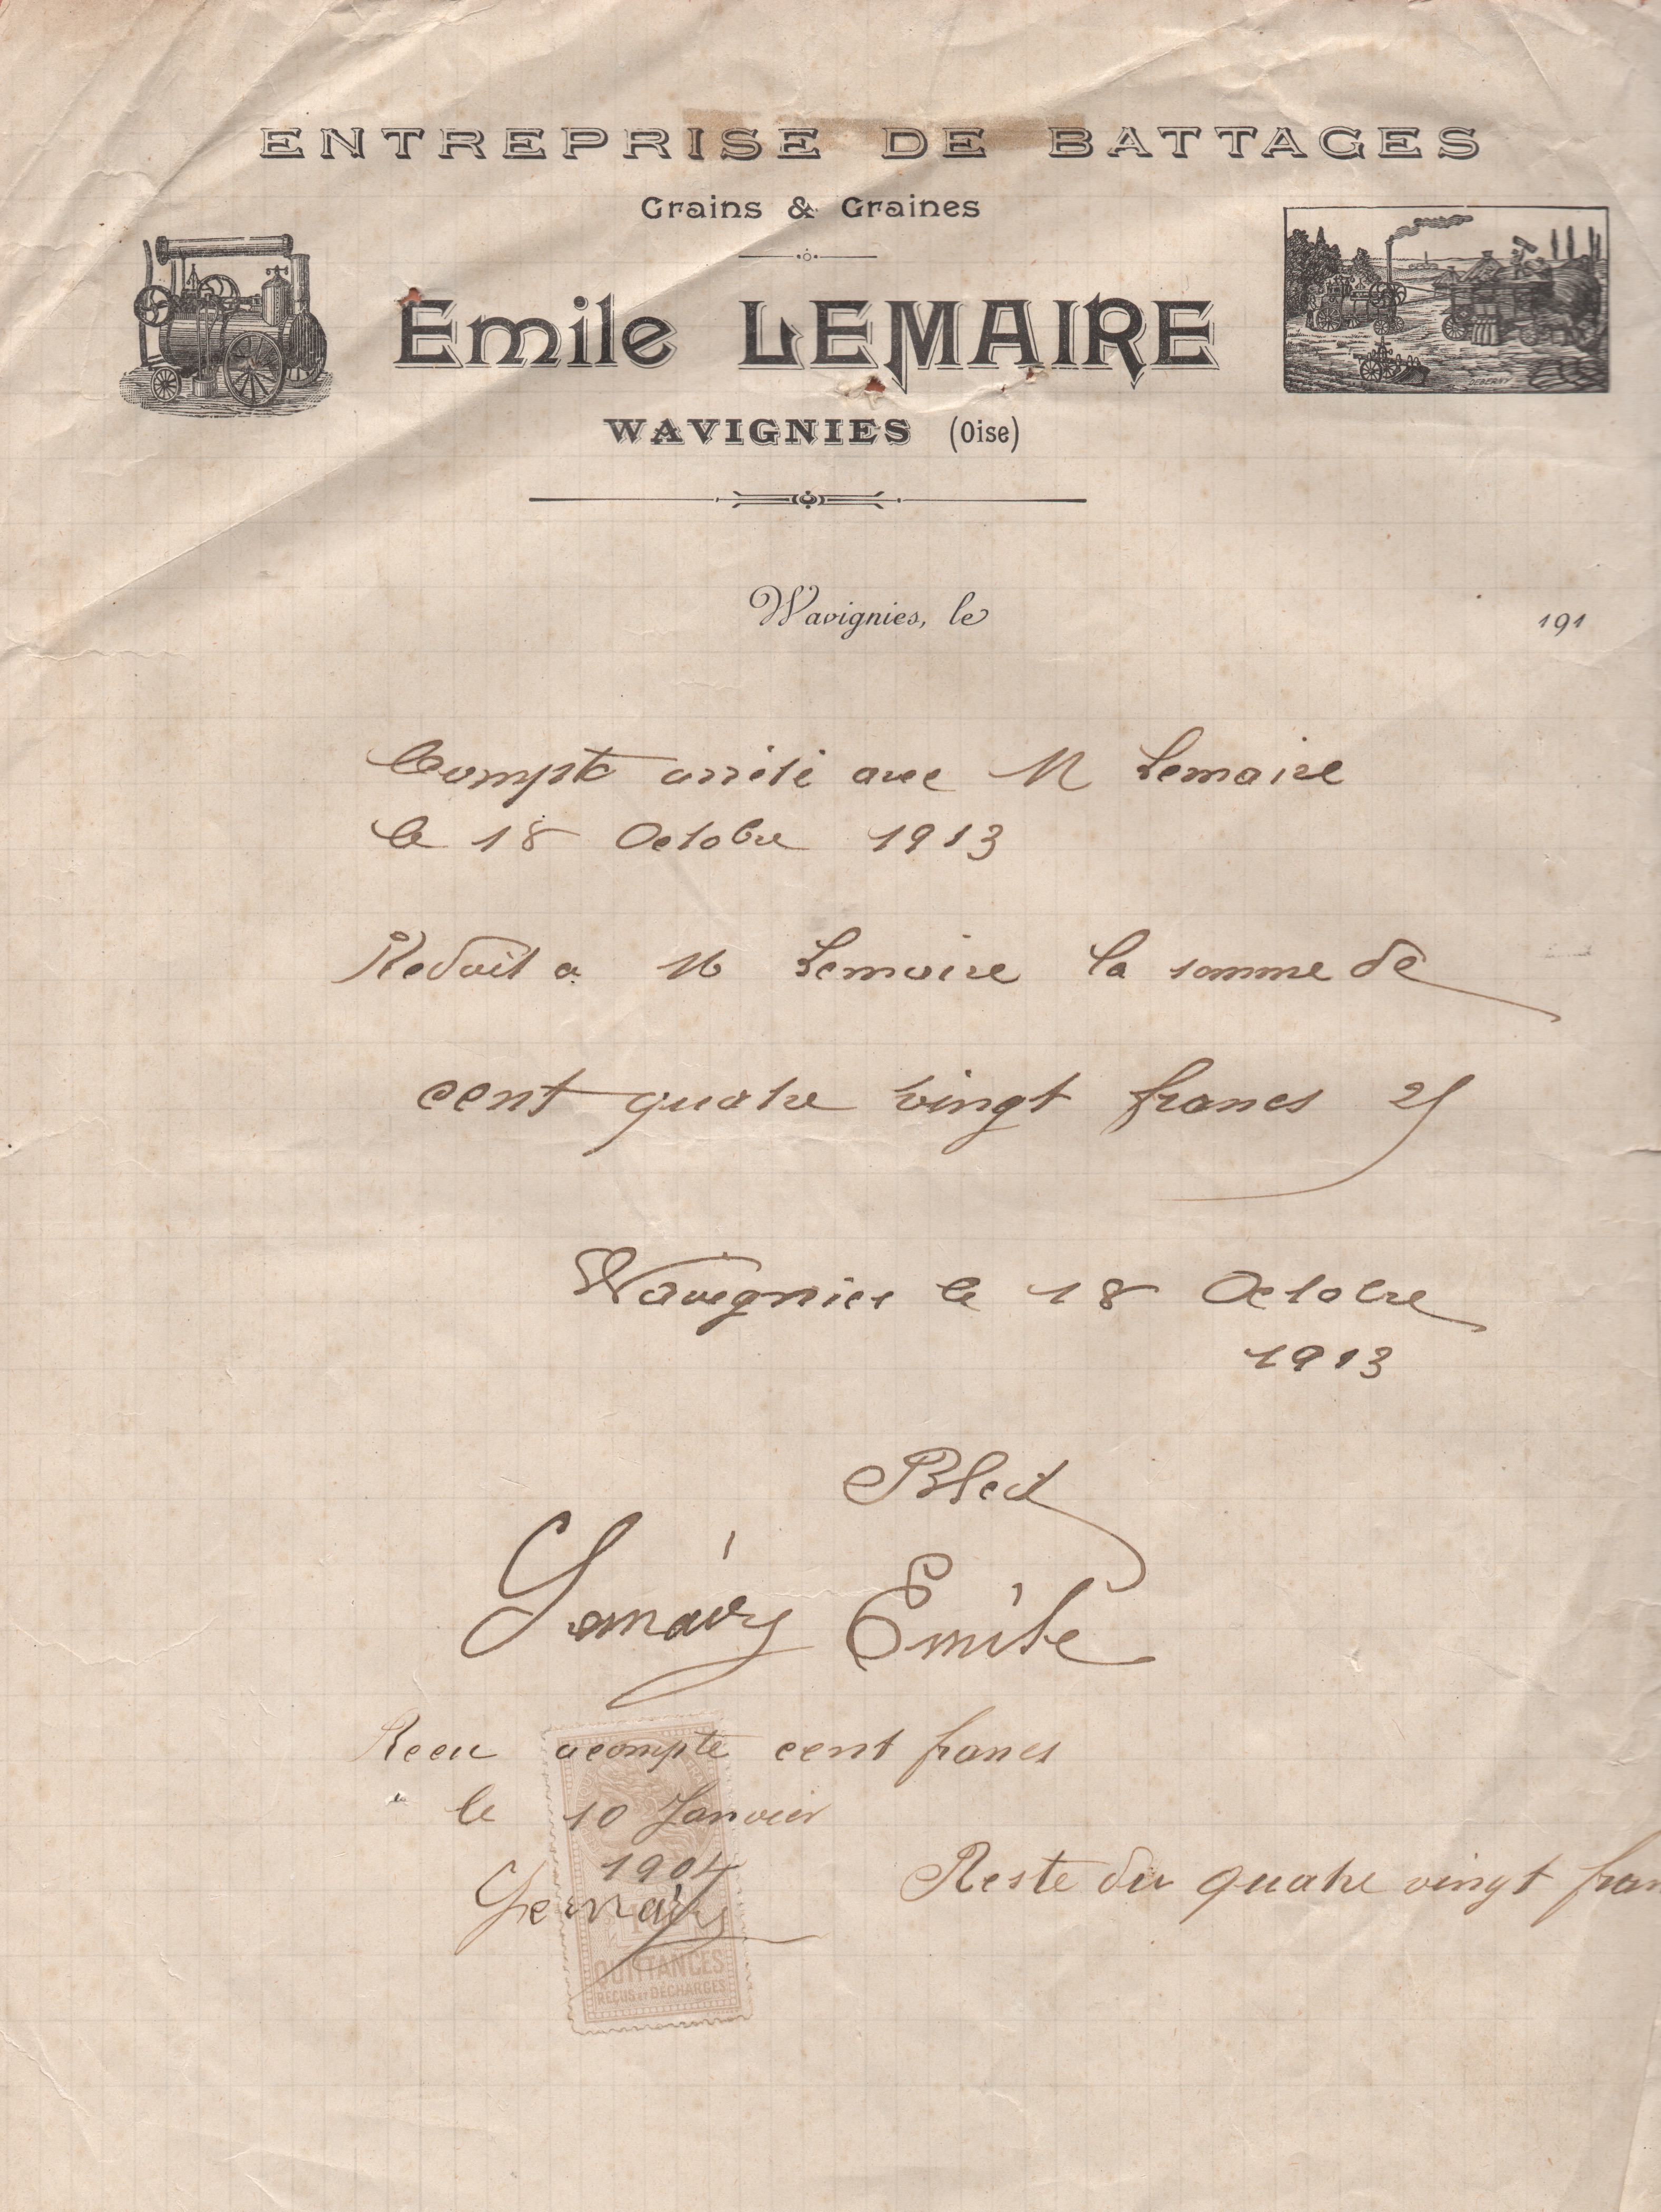 ENTREPRISE DE BATTAGES
Grains & Graines
Emile LEMAIRE
WAVIGNIES (Oise)
Wavignies, le 191
Compte arrêté avec M Lemaire
le 18 Octobre 1913
Redoit a M Lemaire la somme de
cent quatre vingt francs 25
Wavignies le 18 Octobre
1913
Bled
Lemaire Emile
Recu acompte cent francs
le 10 Janvier
1904
Reste du quatre vingt fran
QUITTANCES
REÇUS ET DÉCHARGES